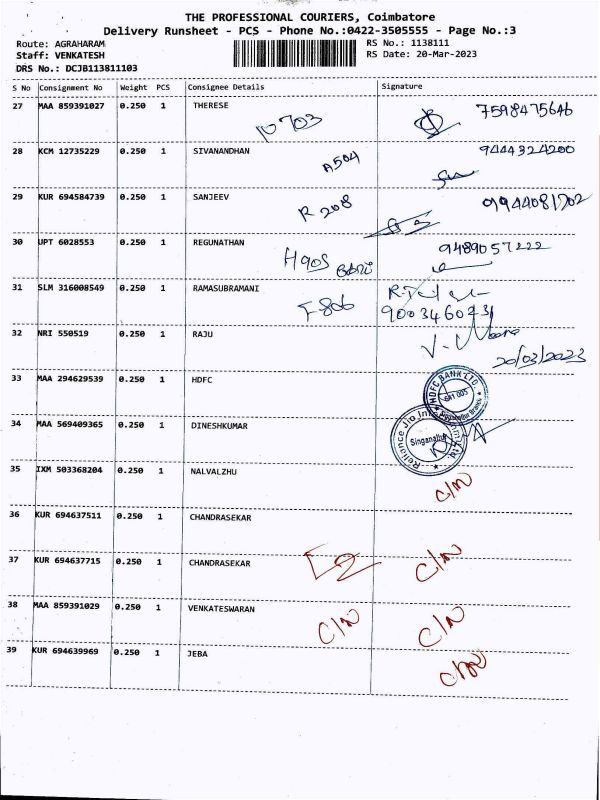 THE PROFESSIONAL COURIERS, Coimbatore
Delivery Runsheet - PCS - Phone No.:0422-3505555 - Page No.:3
Route: AGRAHARAM
RS No.: 1138111
Staff: VENKATESH
RS Date: 20-Mar-2023
DRS No.: DCJB113811103
S No Consignment No Weight PCS Consignee Details Signature
27 MAA 859391027 0.250 1 THERESE 7598475646
10703
28 KCM 12735229 0.250 1 SIVANANDHAN 9444324200
A504
29 KUR 694584739 0.250 1 SANJEEV 9944081702
R 208
30 UPT 6028553 0.250 1 REGUNATHAN 9489057222
H905
31 SLM 316008549 0.250 1 RAMASUBRAMANI
F-806 9003460231
32 NRI 550519 0.250 1 RAJU
20/03/2023
33 MAA 294629539 0.250 1 HDFC
HDFC BANK LTD
34 MAA 569409365 0.250 1 DINESHKUMAR
Reliance Jio
Singanallur
35 IXM 503368204 0.250 1 NALVALZHU
C/N
36 KUR 694637511 0.250 1 CHANDRASEKAR
37 KUR 694637715 0.250 1 CHANDRASEKAR
C/N
38 MAA 859391029 0.250 1 VENKATESWARAN
C/N C/N
39 KUR 694639969 0.250 1 JEBA